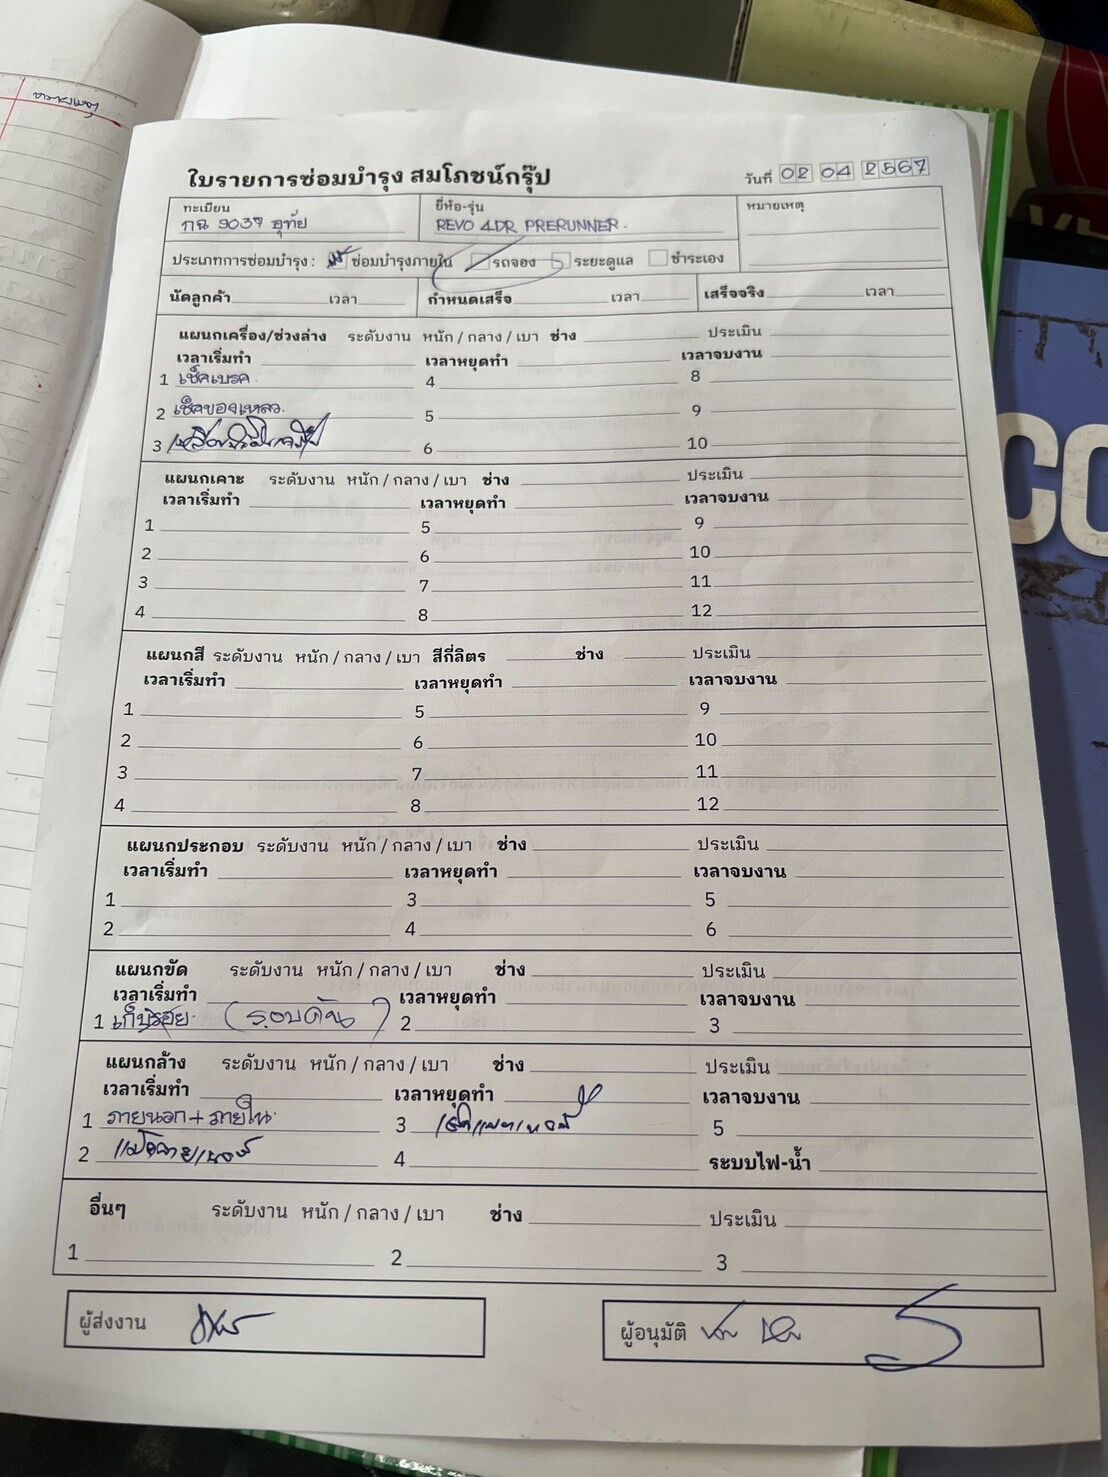 ใบรายการซ่อมบำรุง สมโภชน์กรุ๊ป
วันที่ 02 04 2567
ทะเบียน
ยี่ห้อ-รุ่น
หมายเหตุ
กฉ 9037 อุทัย
REVO 4DR PRERUNNER
ประเภทการซ่อมบำรุง : ซ่อมบำรุงภายใน รถจอง ระยะดูแล ชำระเอง
นัดลูกค้า เวลา กำหนดเสร็จ เวลา เสร็จจริง เวลา
แผนกเครื่อง/ช่วงล่าง ระดับงาน หนัก / กลาง / เบา ช่าง ประเมิน
เวลาเริ่มทำ เวลาหยุดทำ เวลาจบงาน
1 เช็คเบรค 4 8
2 เช็คของเหลว 5 9
3 6 10
แผนกเคาะ ระดับงาน หนัก / กลาง / เบา ช่าง ประเมิน
เวลาเริ่มทำ เวลาหยุดทำ เวลาจบงาน
1 5 9
2 6 10
3 7 11
4 8 12
แผนกสี ระดับงาน หนัก / กลาง / เบา สีกี่ลิตร ช่าง ประเมิน
เวลาเริ่มทำ เวลาหยุดทำ เวลาจบงาน
1 5 9
2 6 10
3 7 11
4 8 12
แผนกประกอบ ระดับงาน หนัก / กลาง / เบา ช่าง ประเมิน
เวลาเริ่มทำ เวลาหยุดทำ เวลาจบงาน
1 3 5
2 4 6
แผนกขัด ระดับงาน หนัก / กลาง / เบา ช่าง ประเมิน
เวลาเริ่มทำ เวลาหยุดทำ เวลาจบงาน
1 เก็บรอย (รอบคัน) 2 3
แผนกล้าง ระดับงาน หนัก / กลาง / เบา ช่าง ประเมิน
เวลาเริ่มทำ เวลาหยุดทำ เวลาจบงาน
1 ภายนอก + ภายใน 3 5
2 4 ระบบไฟ-น้ำ
อื่นๆ ระดับงาน หนัก / กลาง / เบา ช่าง ประเมิน
1 2 3
ผู้ส่งงาน
ผู้อนุมัติ